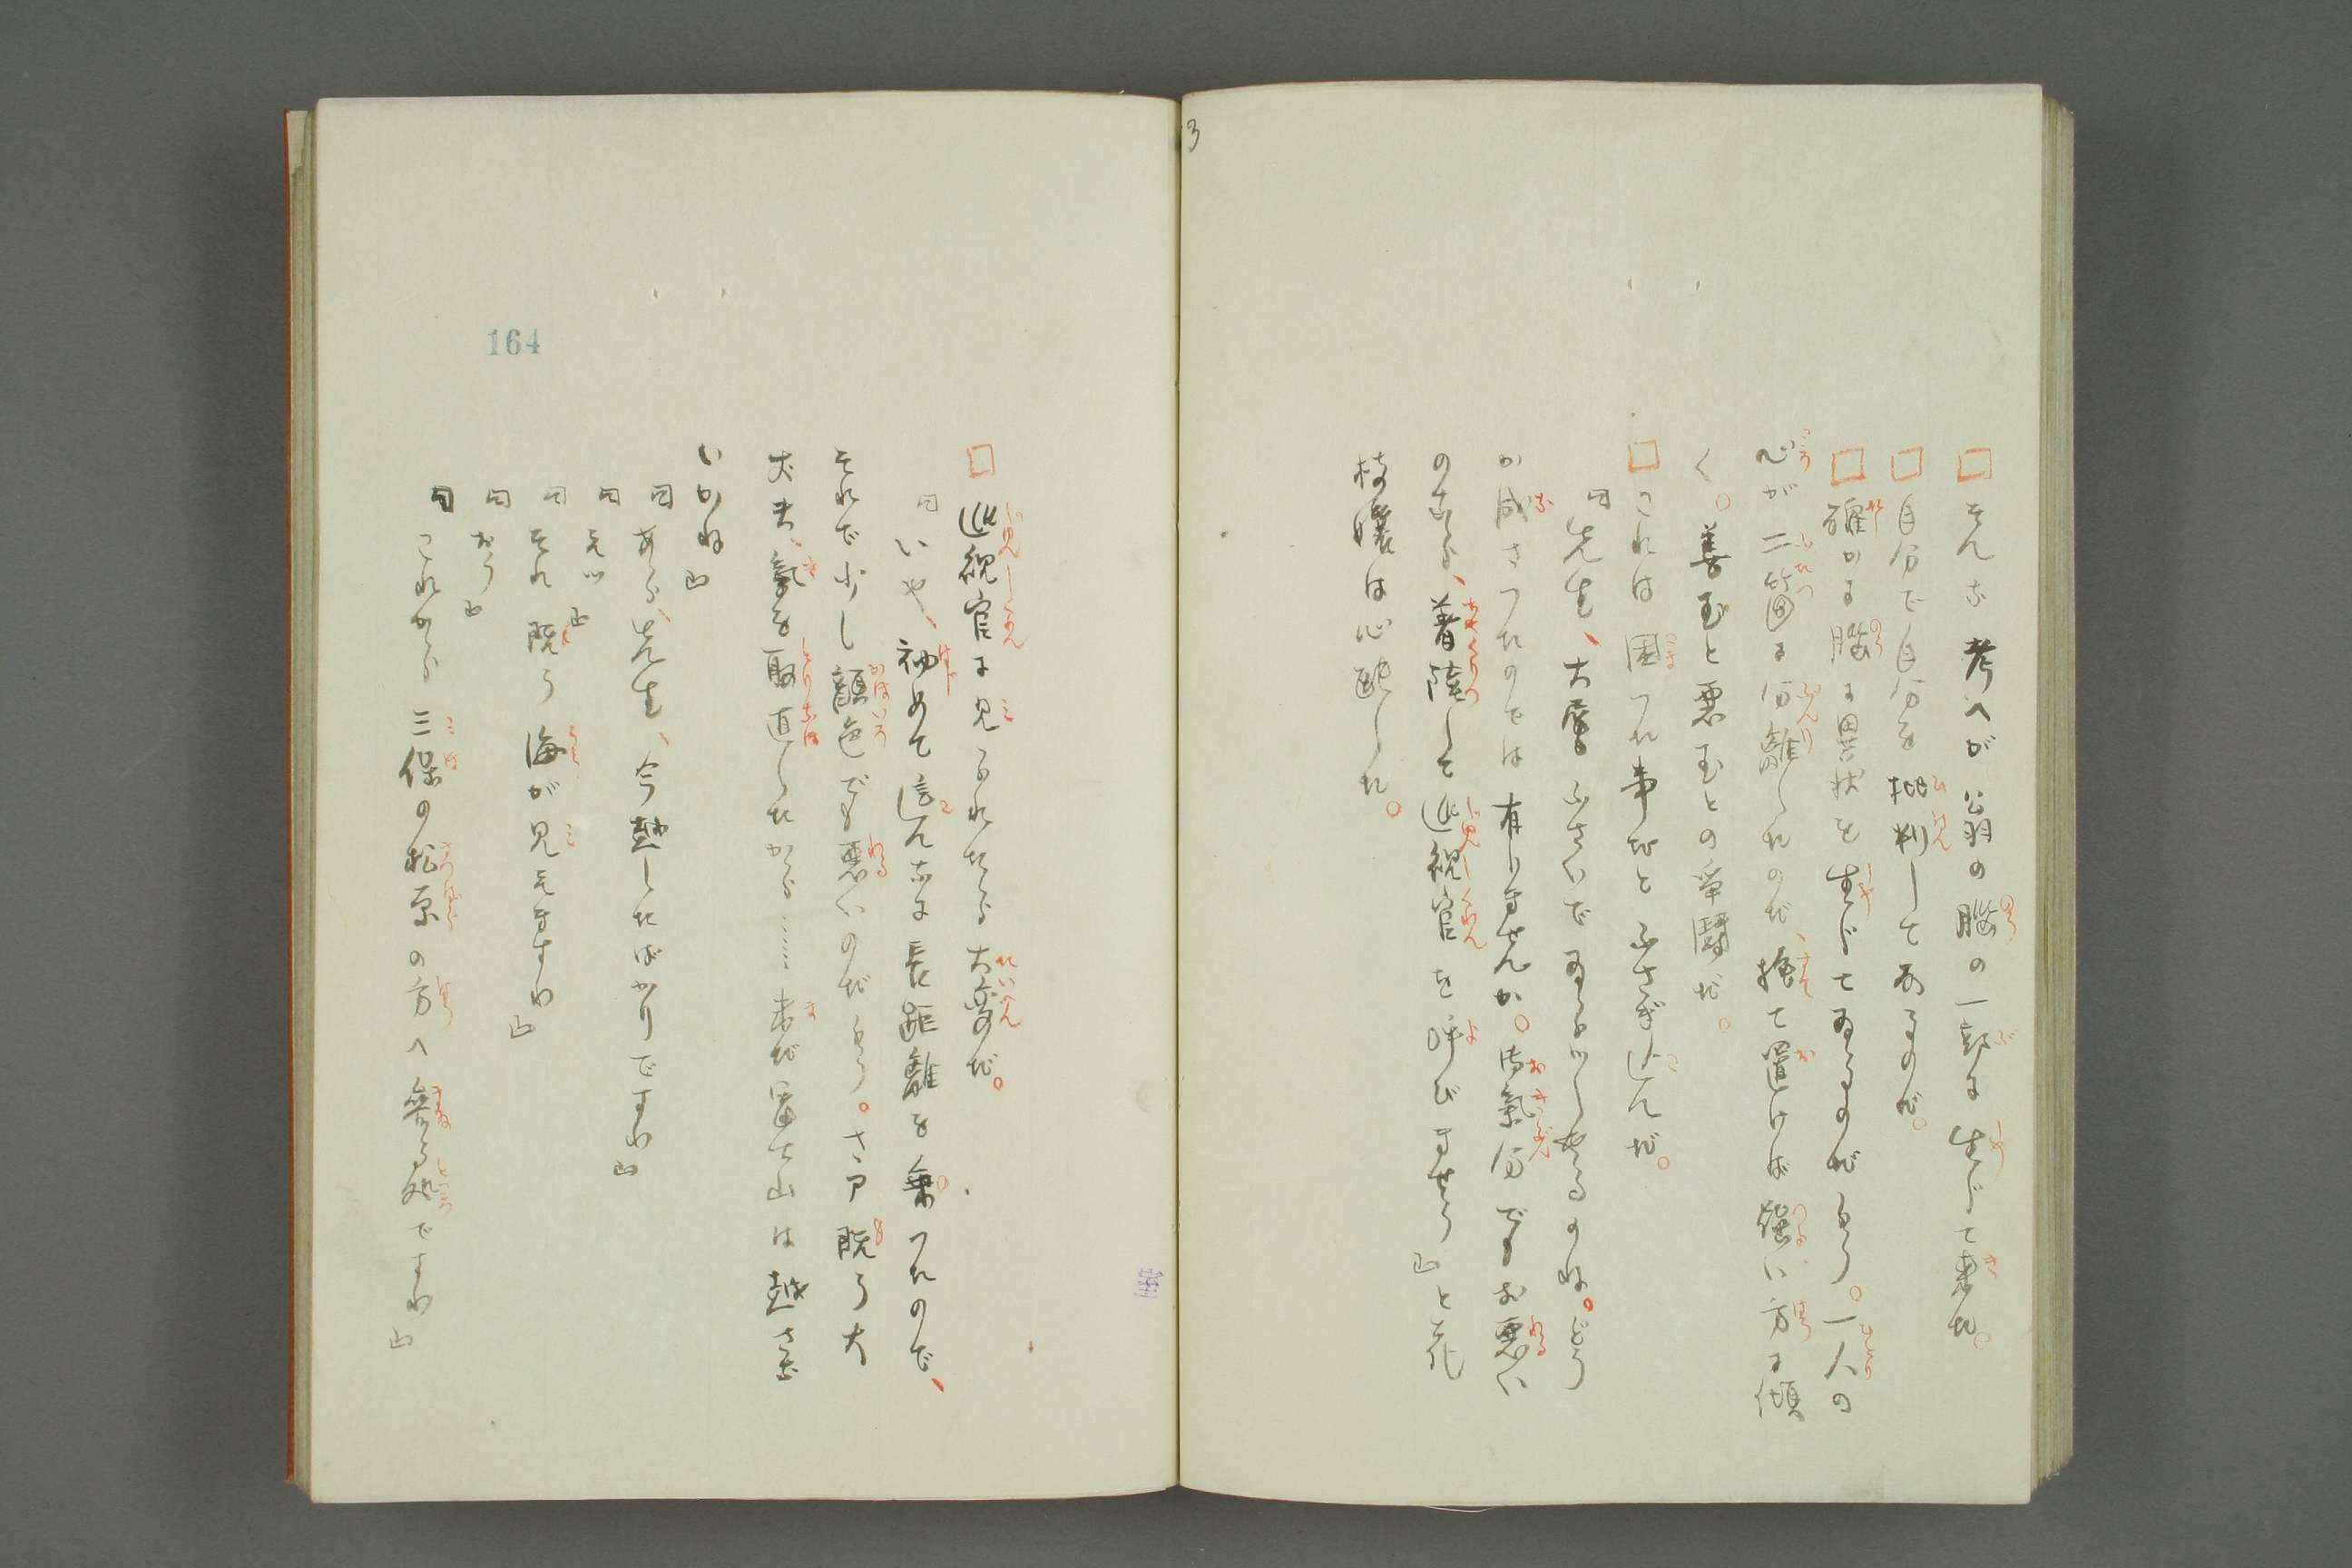 □そんな考へが公羽の腦の一部に生じて來た。
□自分で自分を批判して為るのだ。
□確かに腦に異状を生じて為るのだらう。一人の
心が二箇に分離したのだ、捨て置けば強い方に傾
く。善玉と悪玉との爭鬪だ。
□これは困つた事だとふさぎ込んだ。
「先生、大層ふさいで為らつしやるのね。どう
か成さつたのでは有りませんか。御氣分でもお悪い
のなら、着陸して巡視官を呼びませう」と花
枝孃は心配した。
□巡視官に見られたら大變だ。
「いや、初めて這んなに長距離を乗つたので、
それで少し顔色でも悪いのだらう。さア既う大
丈夫、氣を取直したから……未だ富士山は越さな
いかね」
「あら、先生、今越したばかりですわ」
「えッ」
「それ既う海が見えますわ」
「おう」
「これから三保の松原の方へ參る処ですわ」
164
3